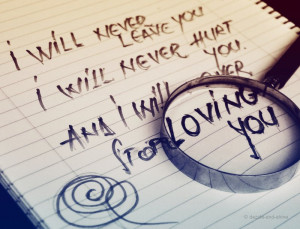 I WILL NEVER
LEAVE YOU
I WILL NEVER HURT
YOU.
AND I WILL EVER
STOP LOVING
YOU